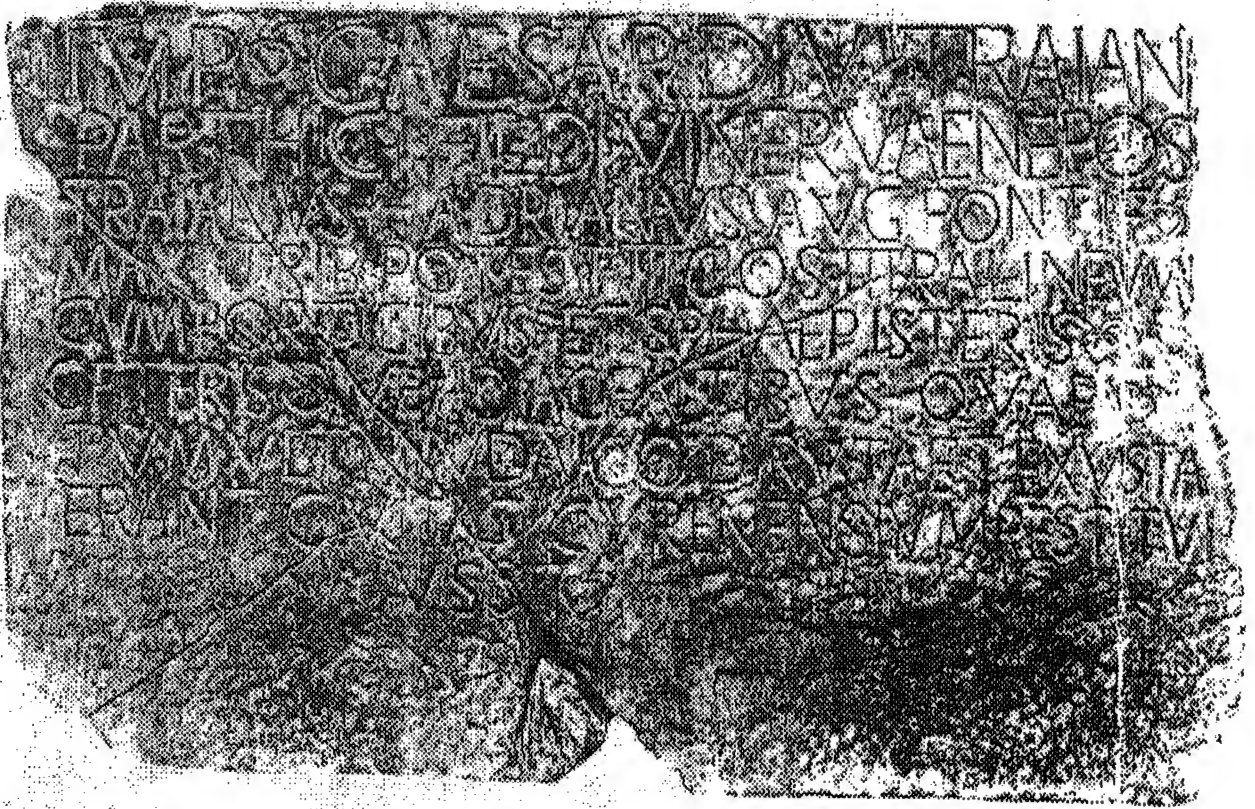 IMP CAESAR DIVI TRAIANI
PARTHICI F DIVI NERVAE NEPOS
TRAIANVS HADRIANVS AVG PONTIF
MAX TRIB POTEST III COS III BALINEVM
CVM PORTICIBVS ET SPHAERISTERIS
CETERISQVE ADIACENTIBVS QVAE
TVMVLTV IVDAICO DIRVTA ET EXVSTA
ERANT CIVITATI CYRENENSIVM RESTITVI
IVSSIT